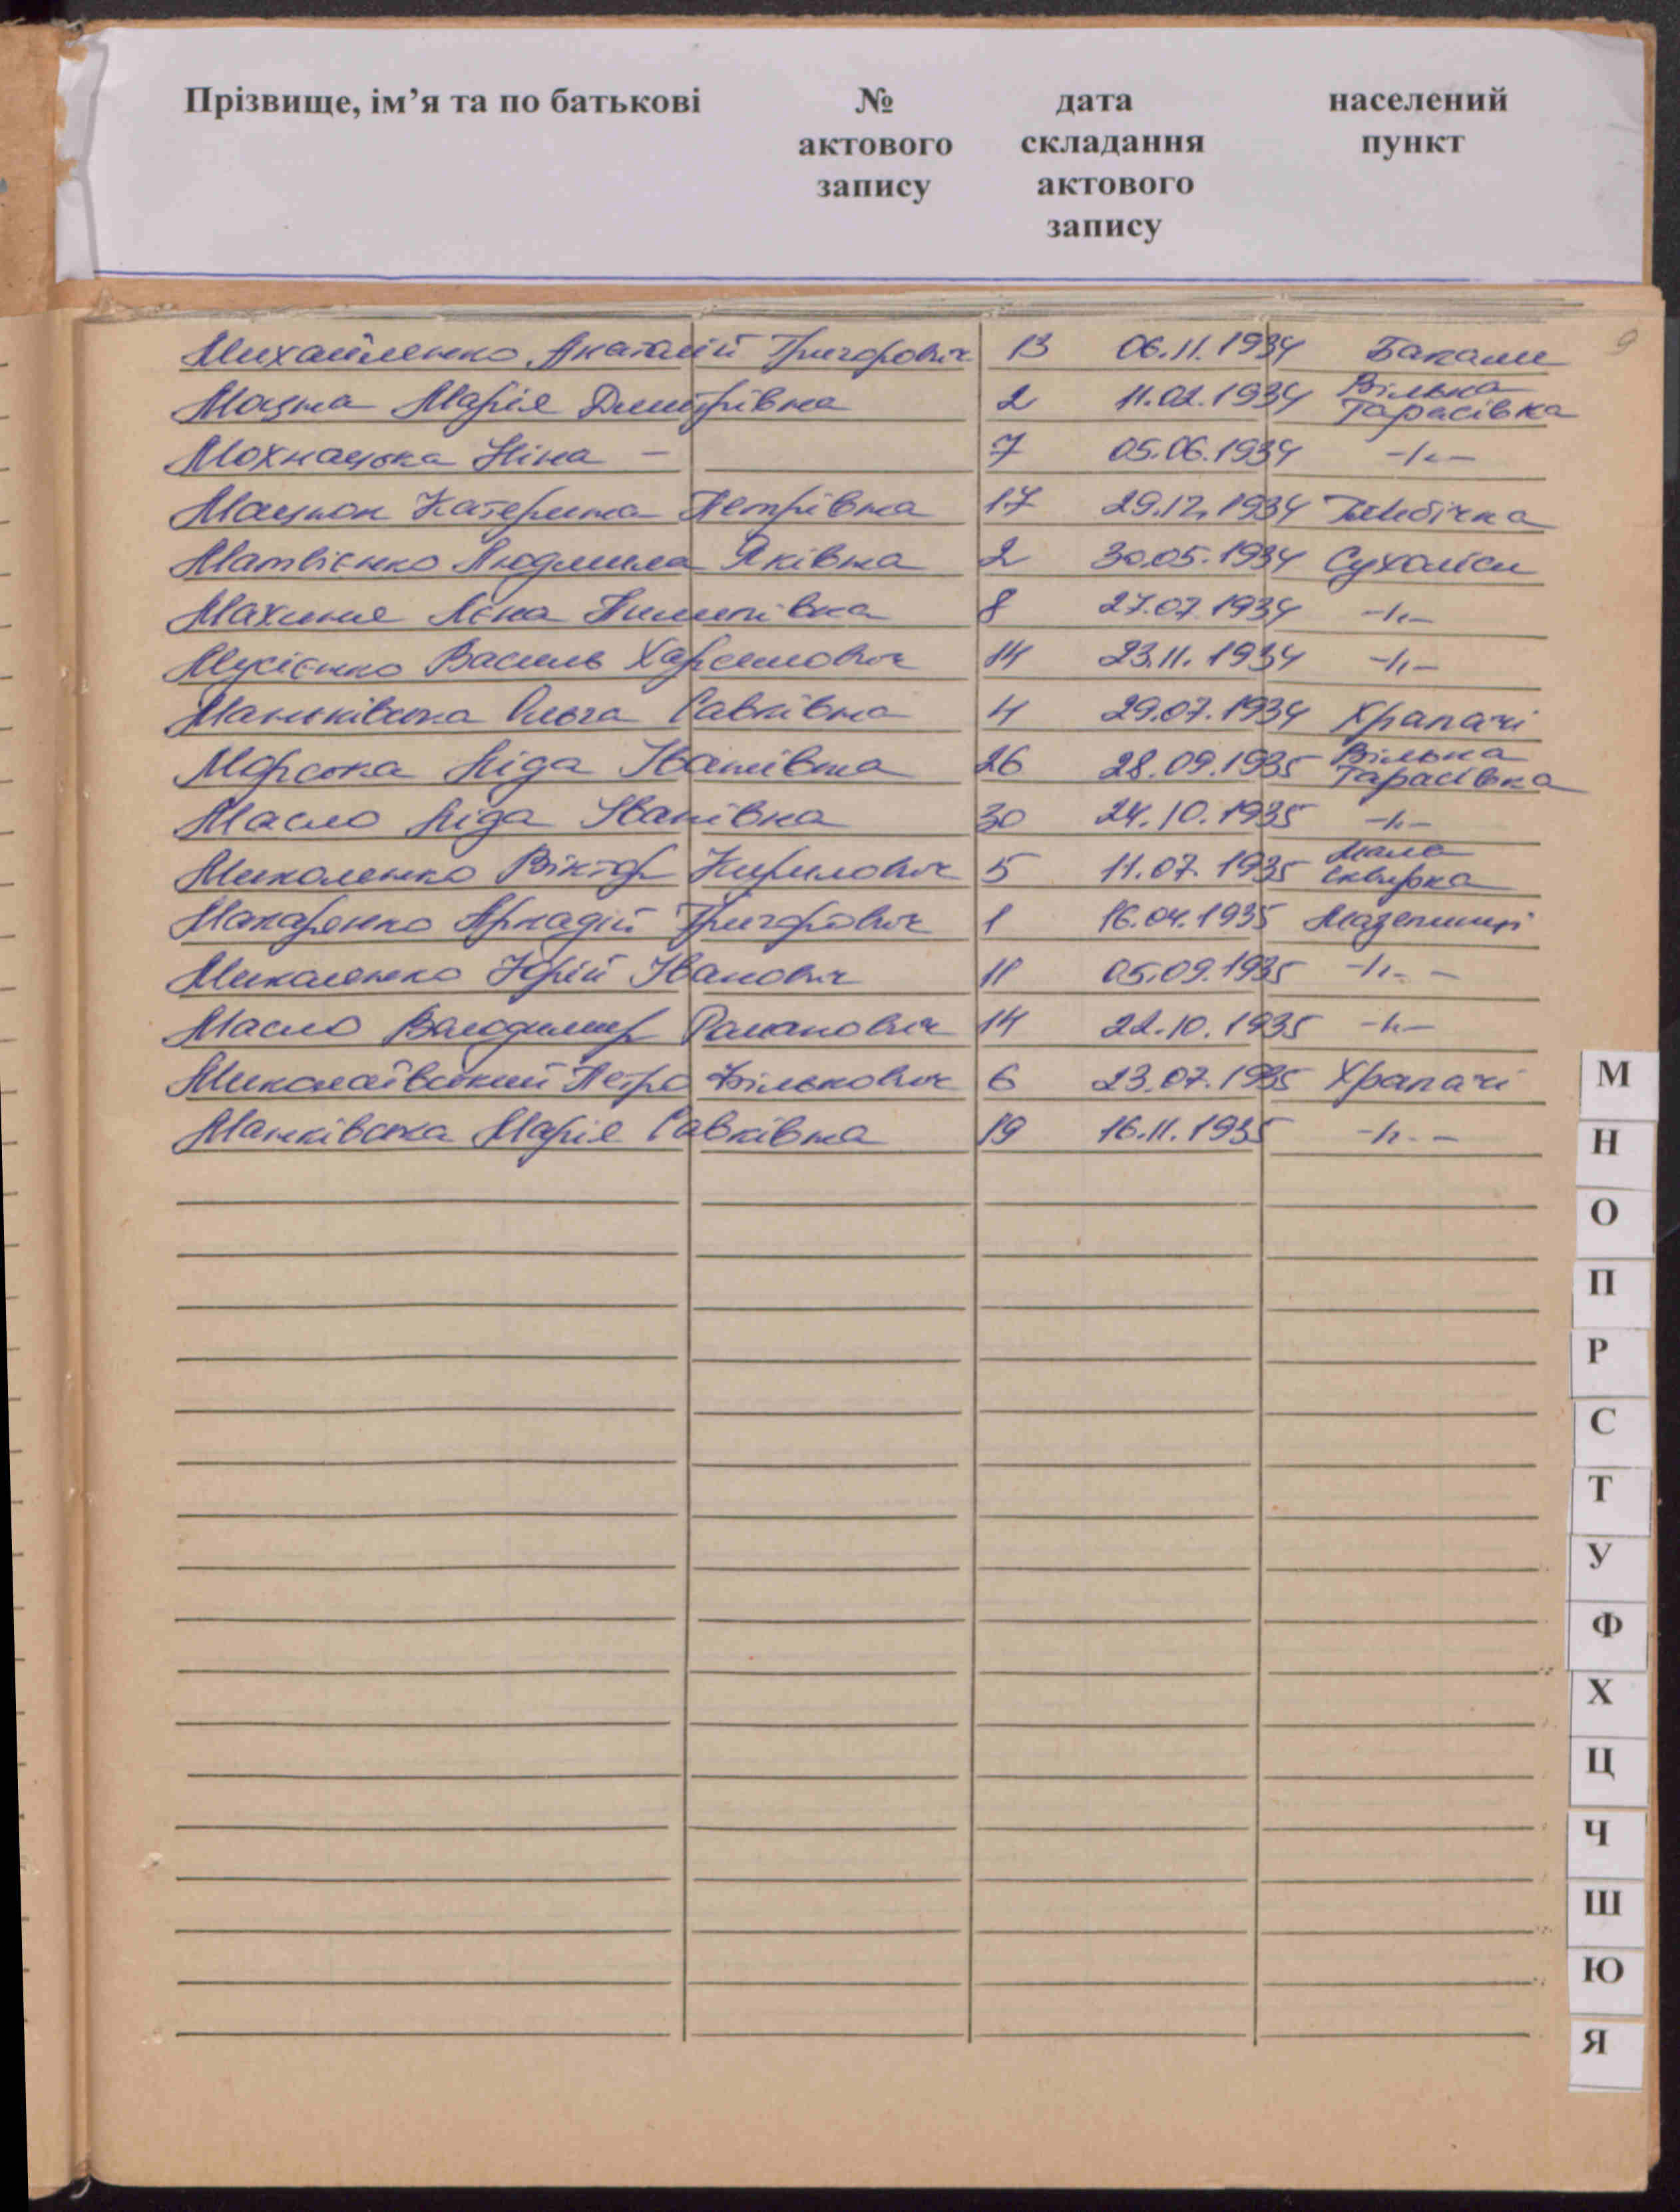 Прізвище, ім’я та по батькові № дата населений
актового складання пункт
запису актового
запису
9
Михайленко Анатолій Григорович 13 06.11.1934 Бакали
Мацна Марія Дмитрівна 2 11.02.1934 Вільна Тарасівка
Мохнацька Ніна – 7 05.06.1934 -//-
Мацюк Катерина Петрівна 17 29.12.1934
Матвієнко Людмила Яківна 2 30.05.1934 Сухоліси
Махиня Лєна Пилипівна 8 27.07.1934 -//-
Мусієнко Василь Харитонович 14 23.11.1934 -//-
Маньківська Ольга Савківна 4 29.07.1934 Храпачі
Морська Ліда Іванівна 26 28.09.1935 Вільна Тарасівка
Масло Ліда Іванівна 30 24.10.1935 -//-
Миколенко Віктор Кирилович 5 11.07.1935 Мала Сквирка
Макаренко Аркадій Григорович 1 16.04.1935 Мазепинці
Миколенко Юрій Іванович 11 05.09.1935 -//-
Масло Володимир Романович 14 22.10.1935 -//-
Миколаївський Петро Фількович 6 23.07.1935 Храпачі
Маньківська Марія Савківна 19 16.11.1935 -//-
М
Н
О
П
Р
С
Т
У
Ф
Х
Ц
Ч
Ш
Ю
Я